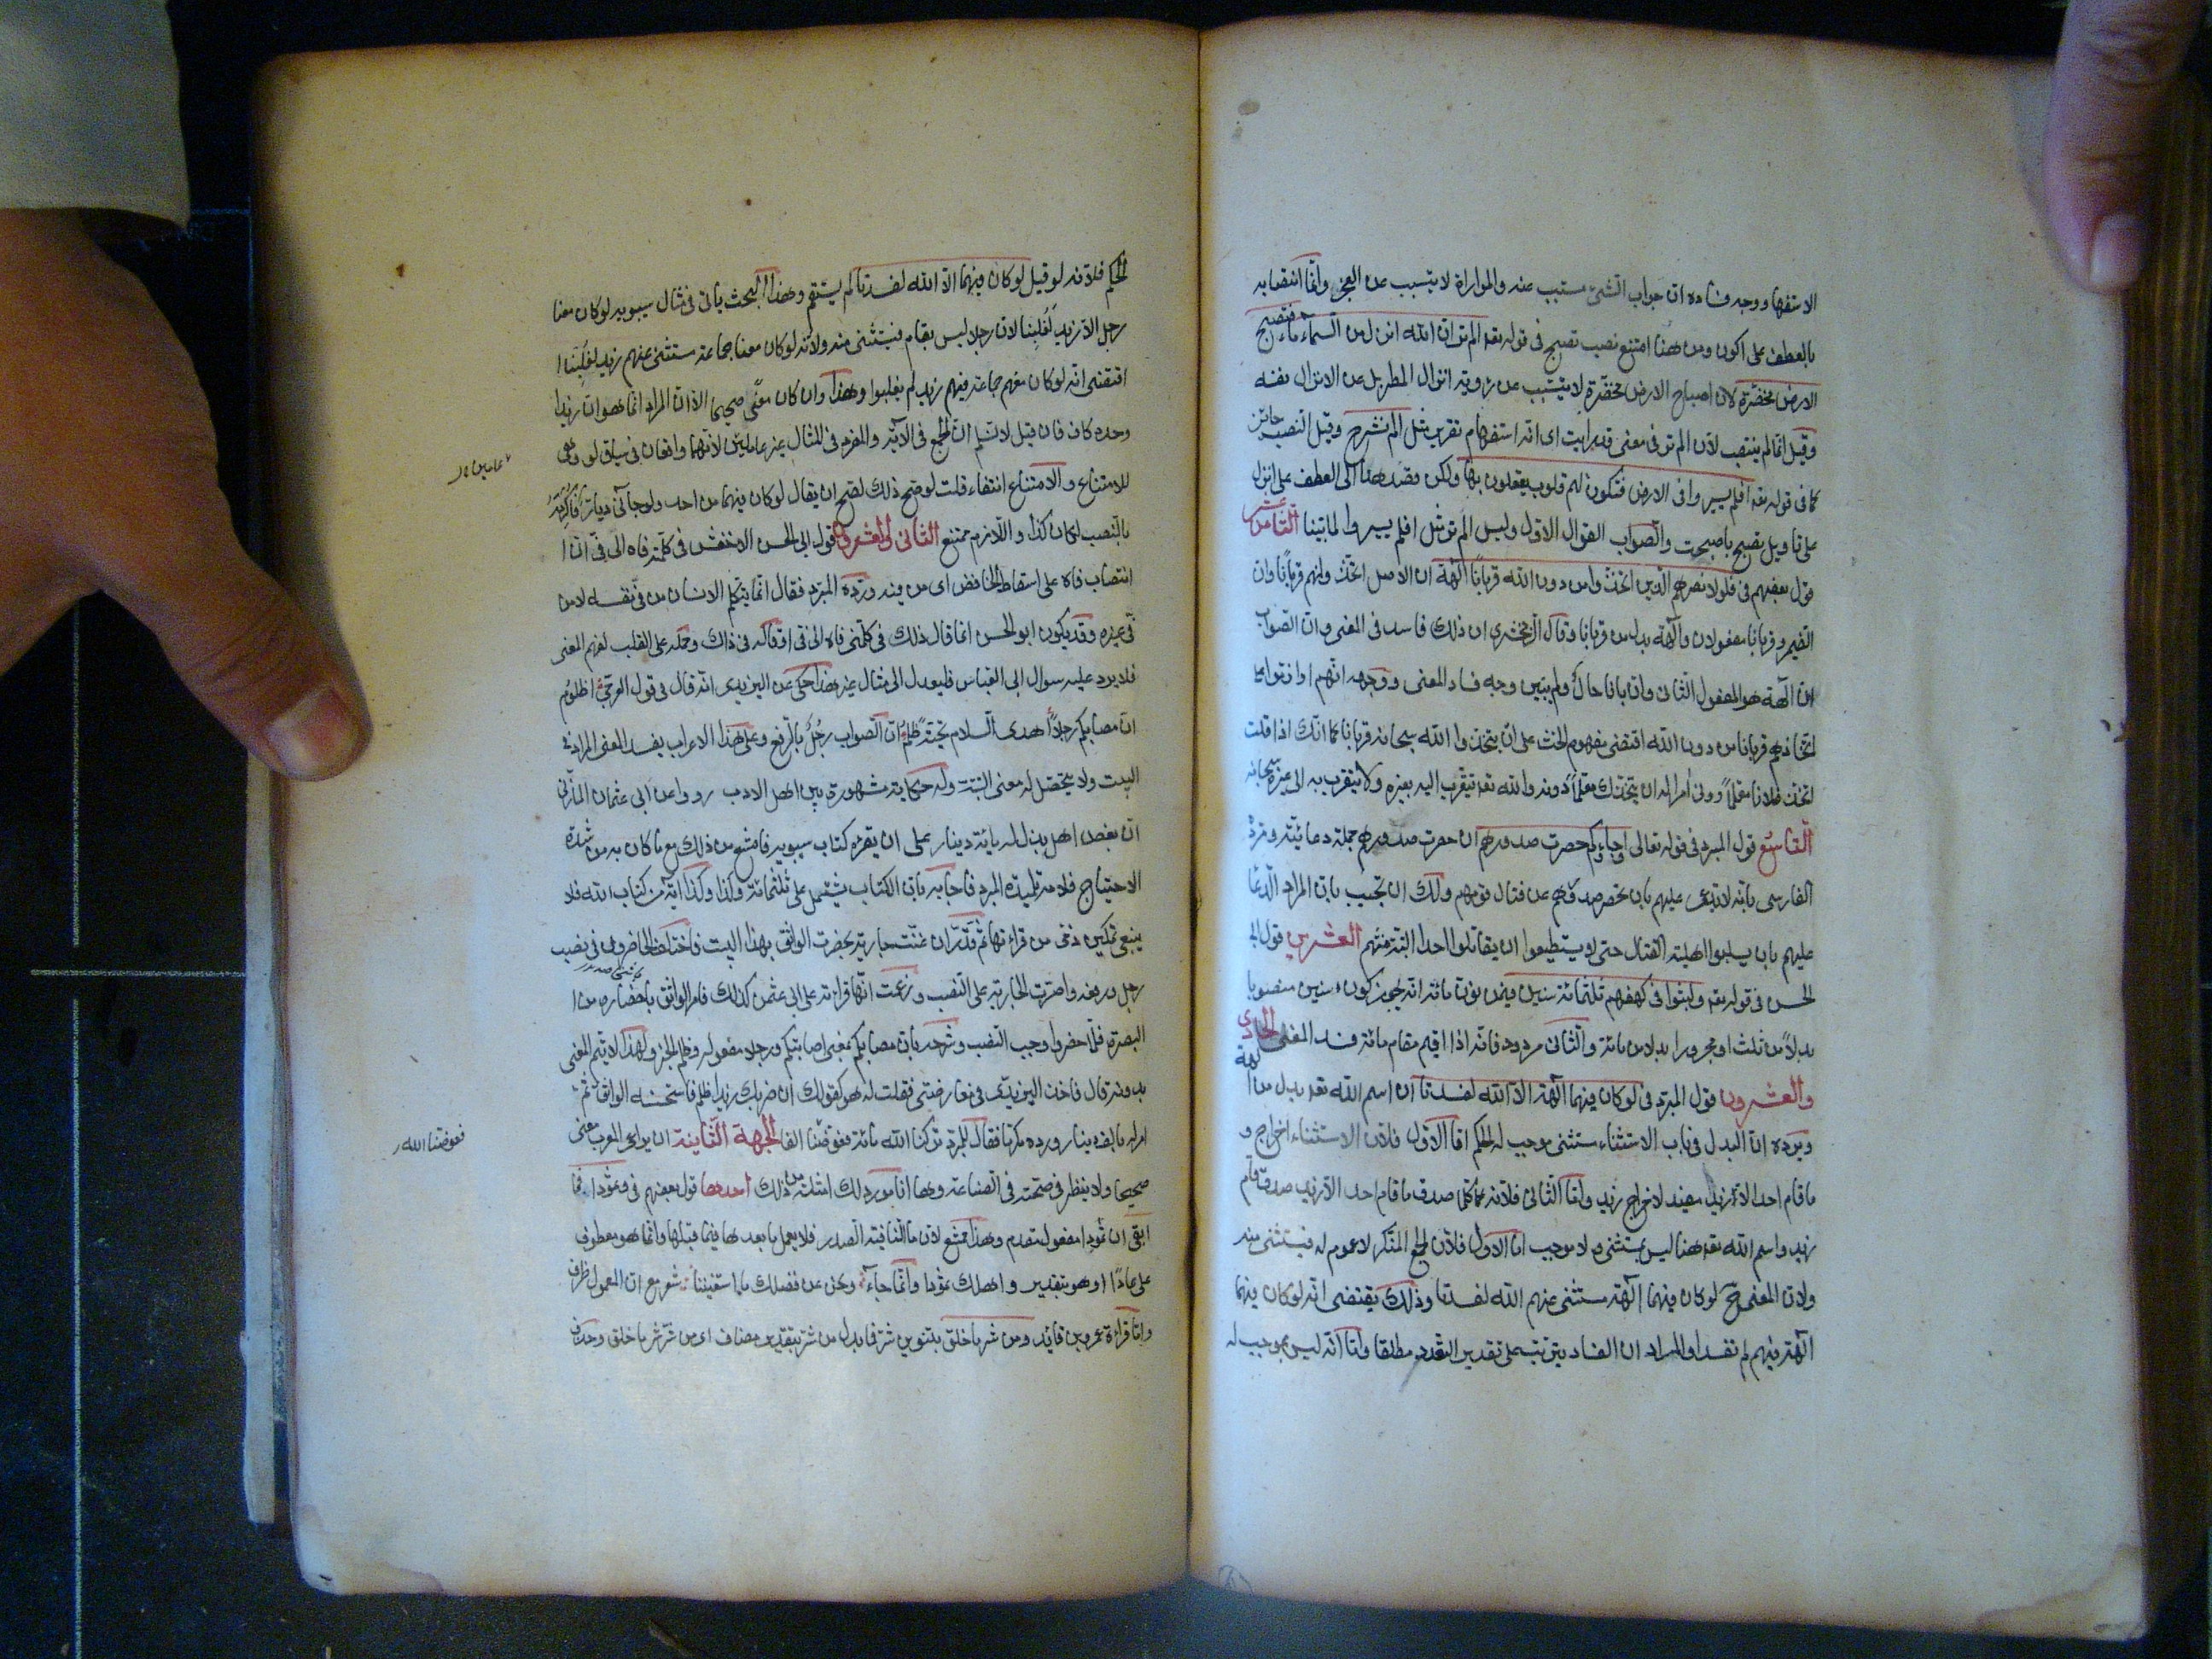 الاستفها ووجه فساده ان جواب الشئ مسبب عنه والمواراة لا يتسبب عن العجز وانما انتصابه
بالعطف على اكون ومن هنا امتنع نصب تصبح فى قوله تعه الم تر ان الله انزل من السماء ماء فتصبح
الارض مخضرة لان اصباح الارض مخضرة لا يتسبب عن رؤية انزال المطر بل عن الانزال نفسه
وقيل انما لم ينتصب لان الم تر فى معنى قد رايت اى انه استفهام تقرير مثل الم نشرح وقيل النصب جائز
كما فى قوله تعه افلم يسيروا فى الارض فتكون لهم قلوب يعقلون بها ولكن قصد هنا الى العطف على انزل
على تاويل تصبح باصبحت والصواب القول الاول وليس الم تر مثل افلم يسيروا لما بينا الثامن عشر
قول بعضهم فى فلولا نصرهم الذين اتخذوا من دون الله قربانا آلهة ان الاصل اتخذوهم قربانا وان
الضمير وقربانا مفعولان وآلهة بدل من قربانا وقال الزمخشرى ان ذلك فاسد فى المعنى وان الصواب
ان آلهة هو المفعول الثانى وان قربانا حال ولم يبين وجه فساد المعنى ووجهه انهم اذا ذموا على
اتخاذهم قربانا من دون الله اقتضى مفهومه الحث على ان يتخذوا الله سبحانه قربانا كما انك اذا قلت
اتتخذ فلانا معلما دونى امرا له ان يتخذك معلما دونه والله تعه يتقرب اليه بغيره ولا يتقرب به الى غيره سبحانه
التاسع قول المبرد فى قوله تعالى او جاؤكم حصرت صدورهم ان حصرت صدورهم جملة دعائية ورده
الفارسى بانه لا يدعى عليهم بان تحصر صدورهم عن قتال قومهم ولك ان تجيب بان المراد الدعا
عليهم بان يسلبوا اهلية القتال حتى لا يستطيعوا ان يقاتلوا احدا البتة العشرين قول ابى
الحسن فى قوله تعه ولبثوا فى كهفهم ثلثمائة سنين فيمن نون مائة انه يجوز كون سنين منصوبا
بدلا من ثلث او مجرورا بدلا من مائة والثانى مردود فانه اذا اقيم مقام مائة فسد المعنى الحادى
والعشرون قول المبرد فى لو كان فيهما آلهة الا الله لفسدتا ان اسم الله تعه بدل من آلهة
ويرده ان البدل فى باب الاستثناء مستثنى موجب له الحكم اما الاول فلان الاستثناء اخراج و
ما قام احد الا زيد مفيد لاخراج زيد واما الثانى فلانه كلما صدق ما قام احد الا زيد صدق قام
زيد واسم الله تعه هنا ليس بمستثنى ولا موجب اما الاول فلان الجمع المنكر لا عموم له فيستثنى منه
ولان المعنى ح لو كان فيهما آلهة مستثنى عنهم الله لفسدتا وذلك يقتضى انه لو كان فيهما
آلهة فيهم لم تفسدا والمراد ان الفساد يترتب على تقدير التعدد مطلقا واما انه ليس بموجب له
الحكم فلانه لو قيل لو كان فيهما الا الله لفسدتا لم يستقم وهذا البحث ياتى فى مثال سيبويه لو كان معنا
رجل الا زيد لغلبنا لان رجلا ليس بعام فيستثنى منه ولانه لو كان معنا جماعة مستثنى عنهم زيد لغلبنا
اقتضى انه لو كان معهم جماعة فيهم زيد لم يغلبوا وهذا وان كان معنى صحيحا الا ان المراد انما هو ان زيدا
وحده كاف فان قيل لا نسلم ان الجمع فى الآية والمفرد فى المثال غير عامين لانهما واقعان فى سياق لو وهى
للامتناع والامتناع انتفاء قلت لو صح ذلك لصح ان يقال لو كان فيهما من احد ولو جآنى ديار فاكرمه
بالنصب لكان كذا واللازم ممتنع الثانى والعشرون قول ابى الحسن الاخفش فى كلمته فاه الى فى ان
انتصاب فاه على اسقاط الخافض اى من فيه ورده المبرد فقال انما يتكلم الانسان من فى نفسه لا من
فى غيره وقد يكون ابو الحسن انما قال ذلك فى كلمنى فاه الى فى او قاله فى ذاك وحمله على القلب لفهم المعنى
فلا يرد عليه سوال ابى العباس فليعدل الى مثال غير هذا حكى عن اليزيدى انه قال فى قول العرجى اظلوم
ان مصابكم رجلا اهدى السلام تحية ظلم ان الصواب رجل بالرفع وعلى هذا الاعراب يفسد المعنى المراد فى
البيت ولا يتحصل له معنى البتة وله حكاية مشهورة بين اهل الادب رووا عن ابى عثمان المازنى
ان بعض اهل بذل له مائة دينار على ان يقرئه كتاب سيبويه فامتنع من ذلك مع ما كان به من شدة
الاحتياج فلامه تلميذه المبرد فاجابه بان الكتاب يشتمل على ثلثمائة وكذا وكذا آية من كتاب الله فلا
ينبغى تمكين ذمى من قراءتها ثم قدر ان غنت جارية بحضرت الواثق بهذا البيت فاختلف الحاضرون فى نصب
رجل ورفعه واصرت الجارية على النصب وزعمت انها قراته على ابى عثمن كذلك فامر الواثق باحضاره من
البصرة فلما حضر اوجب النصب وشرحه بان مصابكم بمعنى اصابتكم ورجلا مفعوله وظلم الخبر ولهذا لا يتم المعنى
بدونه قال فاخذ اليزيدى فى معارضتى فقلت له هو كقولك ان ضربك زيدا ظلم فاستحسنه الواثق ثم
امر له بالف دينار ورده مكرما فقال للمبرد تركنا الله مائة فعوضنا الفا الجهة الثانية ان يراعى المعرب معنى
صحيحا ولا ينظر فى صحته فى الصناعة وها انا مورد لك امثلة من ذلك احدها قول بعضهم فى وثمودا فما
ابقى ان ثمودا مفعول مقدم وهذا ممتنع لان ما النافية الصدر فلا يعمل ما بعدها فيما قبلها وانما هو معطوف
على عادا او هو بتقدير واهلك ثمودا وانما جاء ونحن عن فضلك ما استغنينا شعر مع ان المعمول ظرف
واما قراءة عمرو بن فائد ومن شر ما خلق بتنوين شر فما بدل من شر بتقدير مضاف اى من شر شر ما خلق وحذف
فعوضنا الله